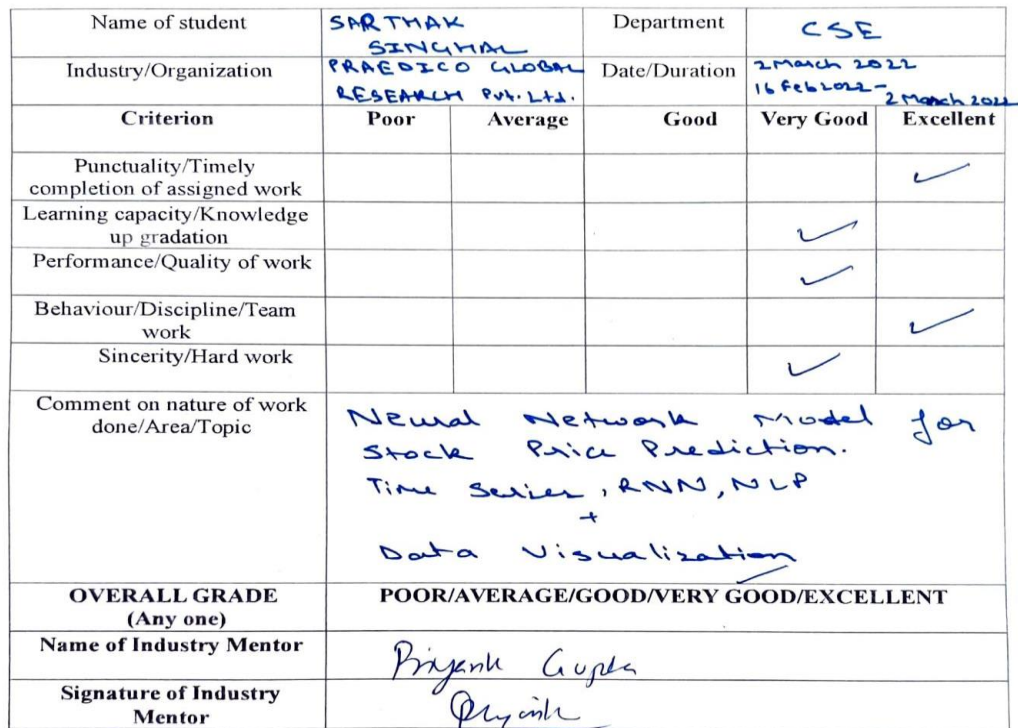 Name of student SARTHAK SINGHAL Department CSE
Industry/Organization PRAEDICO GLOBAL RESEARCH Pvt. Ltd. Date/Duration 2 March 2022 16 Feb 2022 - 2 March 2022
Criterion Poor Average Good Very Good Excellent
Punctuality/Timely
completion of assigned work ✓
Learning capacity/Knowledge
up gradation ✓
Performance/Quality of work ✓
Behaviour/Discipline/Team
work ✓
Sincerity/Hard work ✓
Comment on nature of work
done/Area/Topic
Neural Network Model for
Stock Price Prediction.
Time Series, RNN, NLP
+
Data Visualization
OVERALL GRADE
(Any one)
POOR/AVERAGE/GOOD/VERY GOOD/EXCELLENT
Name of Industry Mentor Priyank Gupta
Signature of Industry
Mentor Priyank